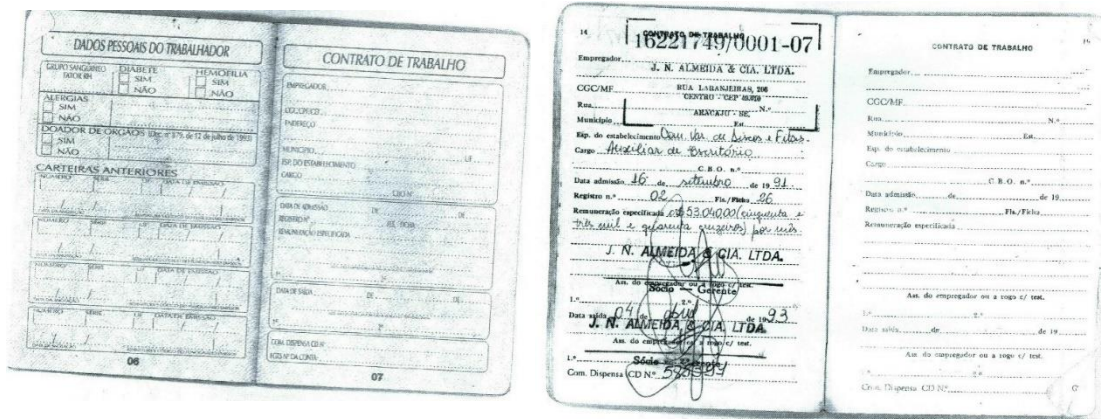 DADOS PESSOAIS DO TRABALHADOR
GRUPO SANGÜÍNEO
FATOR RH
DIABETE
SIM
NÃO
HEMOFILIA
SIM
NÃO
ALERGIAS
SIM
NÃO
DOADOR DE ÓRGÃOS (Dec. nº 879, de 12 de julho de 1993)
SIM
NÃO
CARTEIRAS ANTERIORES
NÚMERO SÉRIE UF DATA DE EMISSÃO
NÚMERO SÉRIE UF DATA DE EMISSÃO
NÚMERO SÉRIE UF DATA DE EMISSÃO
NÚMERO SÉRIE UF DATA DE EMISSÃO
06
CONTRATO DE TRABALHO
EMPREGADOR
CGC/CPF/CEI
ENDEREÇO
MUNICÍPIO UF
ESP. DO ESTABELECIMENTO
CARGO
CBO Nº
DATA DE ADMISSÃO DE DE
REGISTRO Nº FLS./FICHA
REMUNERAÇÃO ESPECIFICADA
1º 2º
DATA DE SAÍDA DE DE
1º 2º
COM. DISPENSA CD Nº
FGTS Nº DA CONTA
07
14
CONTRATO DE TRABALHO
16221749/0001-07
Empregador
J. N. ALMEIDA & CIA. LTDA.
CGC/MF RUA LARANJEIRAS, 206
CENTRO - CEP 49.010
Rua N.º
ARACAJU - SE.
Município Est.
Esp. do estabelecimento Com. Var. de Discos e Fitas.
Cargo Auxiliar de Escritório
C.B.O. n.º
Data admissão 16 de setembro de 1991
Registro n.º 02 Fls./Ficha 26
Remuneração especificada Cr$ 53.040,00 (cinquenta e
três mil e quarenta cruzeiros) por mês
J. N. ALMEIDA & CIA. LTDA.
Ass. do empregador ou a rogo c/ test.
Sócio — Gerente
1.º 2.º
Data saída 04 de abril de 1993
J. N. ALMEIDA & CIA. LTDA.
Ass. do empregador ou a rogo c/ test.
1.º Sócio — Gerente
Com. Dispensa CD N.º
CONTRATO DE TRABALHO
Empregador
CGC/MF
Rua N.º
Município Est.
Esp. do estabelecimento
Cargo
C.B.O. n.º
Data admissão de de 19
Registro n.º Fls./Ficha
Remuneração especificada
Ass. do empregador ou a rogo c/ test.
1.º 2.º
Data saída de de 19
Ass. do empregador ou a rogo c/ test.
1.º 2.º
Com. Dispensa CD N.º